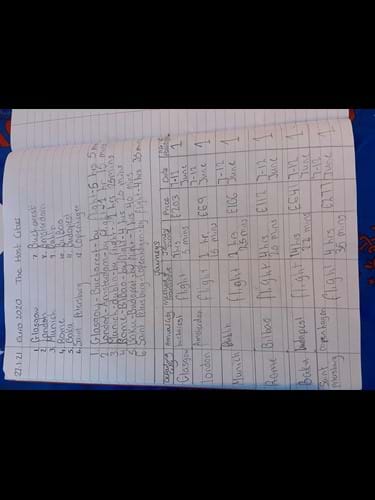 27.1.21 Euro 2020 The Host Cities
1. Glasgow 7. Bucharest
2. London 8. Amsterdam
3. Munich 9. Dublin
4. Rome 10. Bilbao
5. Baku 11. Budapest
6. Saint Petersburg 12. Copenhagen
1. Glasgow - Bucharest - by flight - 5 hrs 5m
2. London - Amsterdam - by flight - 1 16 mins
3. Munich - by flight - 2 hrs 25 mins
4. Rome - Bilbao - by flight - 4 hrs 20 mins
5. Baku - Budapest - by flight - 14 hrs
6. Saint Petersburg - Copenhagen - by flight - 4 hrs 35 min
Journeys
Price Date
Glasgow Bucharest flight 5 hrs 5 mins £203 7-12 June 1
London Amsterdam flight 1 hr 16 mins £69 7-12 June 1
Munich Dublin flight 2 hrs 25 mins £106 7-12 June 1
Rome Bilbao flight 4 hrs 20 mins £112 7-12 June 1
Baku Budapest flight 14 hrs mins £641 7-12 June 1
Saint Petersburg Copenhagen flight 4 hrs 35 mins £277 7-12 June 1